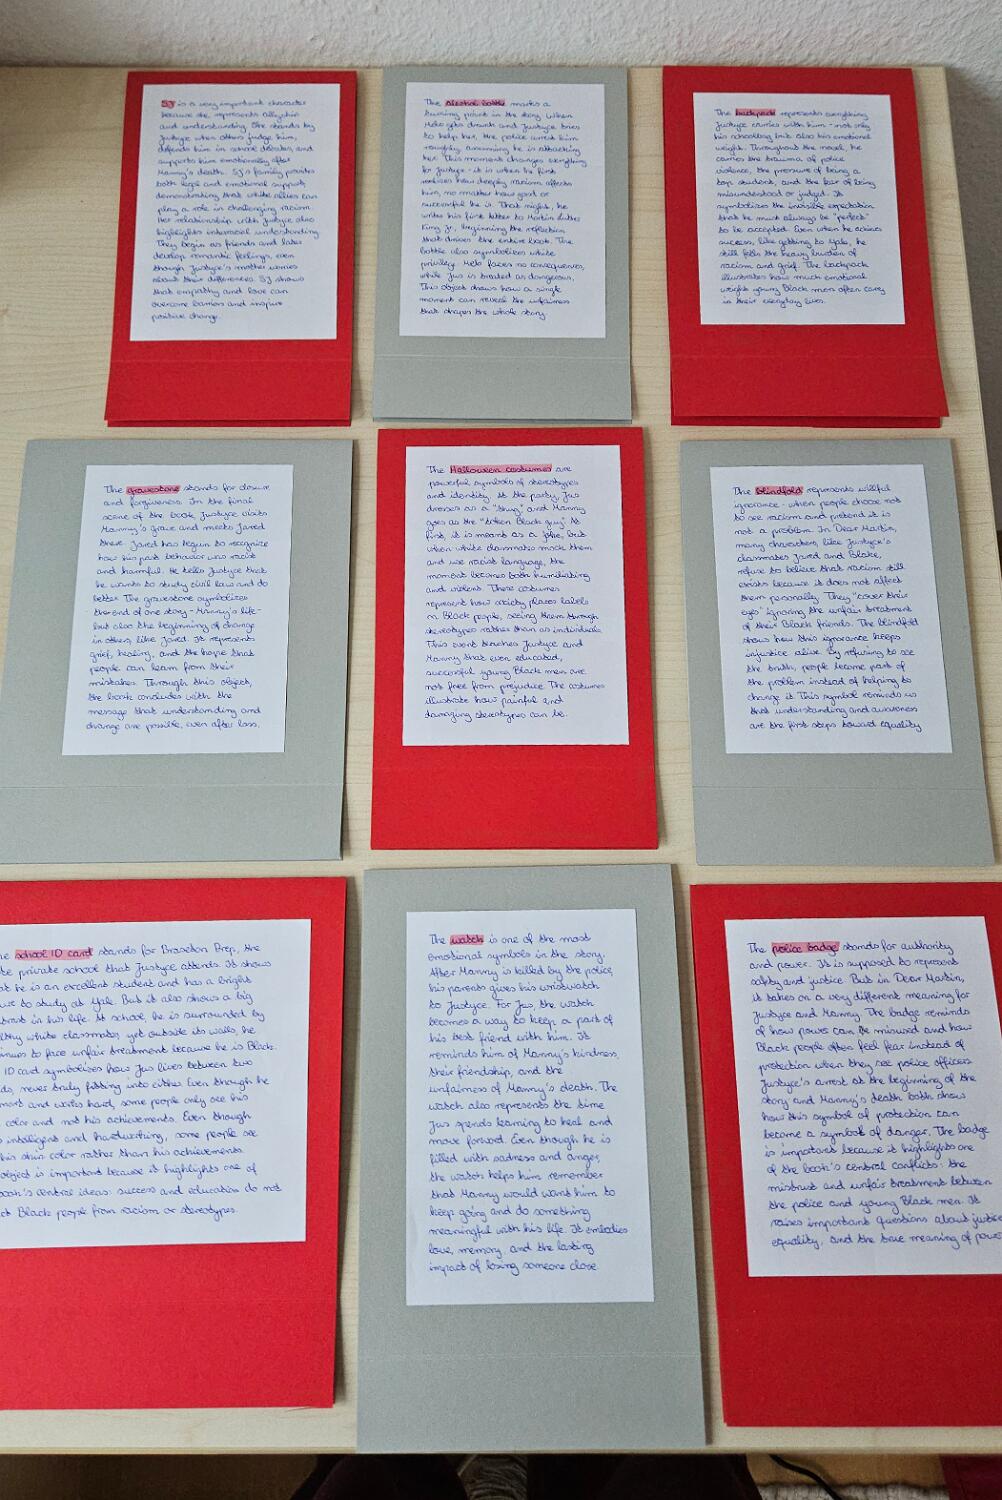 SJ is a very important character
because she represents allyship
and understanding. She stands by
Justyce when others judge him,
defends him in school debates, and
supports him emotionally after
Manny's death. SJ's family provides
both legal and emotional support,
demonstrating that white allies can
play a role in challenging racism.
Her relationship with Justyce also
highlights interracial understanding.
They begin as friends and later
develop romantic feelings, even
though Justyce's mother worries
about their differences. SJ shows
that empathy and love can
overcome barriers and inspire
positive change.
The alcohol bottle marks a
turning point in the story. When
Melo gets drunk and Justyce tries
to help her, the police arrest him
roughly, assuming he is attacking
her. This moment changes everything
for Justyce - it is when he first
realizes how deeply racism affects
him, no matter how good or
successful he is. That night, he
writes his first letter to Martin Luther
King Jr., beginning the reflection
that drives the entire book. The
bottle also symbolizes white
privilege: Melo faces no consequences,
while Jus is treated as dangerous.
This object shows how a single
moment can reveal the unfairness
that shapes the whole story.
The backpack represents everything
Justyce carries with him - not only
his schoolbag but also his emotional
weight. Throughout the novel, he
carries the trauma of police
violence, the pressure of being a
top student, and the fear of being
misunderstood or judged. It
symbolizes the invisible expectation
that he must always be "perfect"
to be accepted. Even when he achieves
success, like getting to Yale, he
still feels the heavy burden of
racism and grief. The backpack
illustrates how much emotional
weight young Black men often carry
in their everyday lives.
The gravestone stands for closure
and forgiveness. In the final
scene of the book, Justyce visits
Manny's grave and meets Jared
there. Jared has begun to recognize
how his past behavior was racist
and harmful. He tells Justyce that
he wants to study civil law and do
better. The gravestone symbolizes
the end of one story - Manny's life -
but also the beginning of change
in others, like Jared. It represents
grief, healing, and the hope that
people can learn from their
mistakes. Through this object,
the book concludes with the
message that understanding and
change are possible, even after loss.
The Halloween costumes are
powerful symbols of stereotypes
and identity. At the party, Jus
dresses as a "thug" and Manny
goes as the "token Black guy". At
first, it is meant as a joke, but
when white classmates mock them
and use racist language, the
moment becomes both humiliating
and violent. These costumes
represent how society places labels
on Black people, seeing them through
stereotypes rather than as individuals.
This event teaches Justyce and
Manny that even educated,
successful young Black men are
not free from prejudice. The costumes
illustrate how painful and
damaging stereotypes can be.
The blindfold represents willful
ignorance - when people choose not
to see racism and pretend it is
not a problem. In Dear Martin,
many characters, like Justyce's
classmates Jared and Blake,
refuse to believe that racism still
exists because it does not affect
them personally. They "cover their
eyes" ignoring the unfair treatment
of their Black friends. The blindfold
shows how this ignorance keeps
injustice alive. By refusing to see
the truth, people become part of
the problem instead of helping to
change it. This symbol reminds us
that understanding and awareness
are the first steps toward equality
school ID card stands for Braselton Prep, the
private school that Justyce attends. It shows
he is an excellent student and has a bright
to study at Yale. But it also shows a big
in his life. At school, he is surrounded by
white classmates, yet outside its walls, he
to face unfair treatment because he is Black.
ID card symbolizes how Jus lives between two
never truly fitting into either. Even though he
and works hard, some people only see his
color and not his achievements. Even though
intelligent and hardworking, some people see
his skin color rather than his achievements.
object is important because it highlights one of
book's central ideas: success and education do not
Black people from racism or stereotypes.
The watch is one of the most
emotional symbols in the story.
After Manny is killed by the police,
his parents gives his wristwatch
to Justyce. For Jus, the watch
becomes a way to keep a part of
his best friend with him. It
reminds him of Manny's kindness,
their friendship, and the
unfairness of Manny's death. The
watch also represents the time
Jus spends learning to heal and
move forward. Even though he is
filled with sadness and anger,
the watch helps him remember
that Manny would want him to
keep going and do something
meaningful with his life. It embodies
love, memory, and the lasting
impact of losing someone close.
The police badge stands for authority
and power. It is supposed to represent
safety and justice. But in Dear Martin,
it takes on a very different meaning for
Justyce and Manny. The badge reminds
of how power can be misused and how
Black people often feel fear instead of
protection when they see police officers.
Justyce's arrest at the beginning of the
story and Manny's death both show
how this symbol of protection can
become a symbol of danger. The badge
is important because it highlights one
of the book's central conflicts: the
mistrust and unfair treatment between
the police and young Black men. It
raises important questions about justice
equality, and the true meaning of power